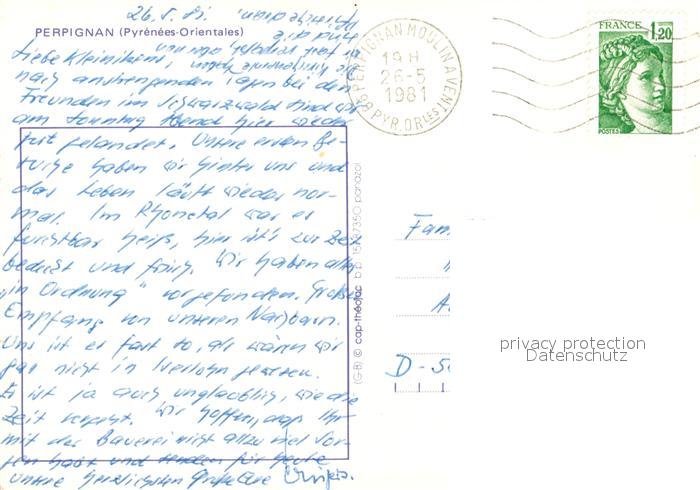 26.5.81.
PERPIGNAN (Pyrénées-Orientales)
Liebe Kleinikens,
nach anstrengenden Tagen bei den
Freunden im Schwarzwald sind wir
am Sonntag Abend hier wieder
gut gelandet. Unsere ersten Be-
suche haben wir hinter uns und
das Leben läuft wieder nor-
mal. Im Rhonetal war es
furchtbar heiß, hier ist's zur Zeit
bedeckt und frisch. Wir haben alles
"in Ordnung" vorgefunden. Großer
Empfang von unseren Nachbarn.
Uns ist es fast so, als wären wir
gar nicht in Iserlohn gewesen.
Es ist ja auch unglaublich, wie die
Zeit vergeht. Wir hoffen, daß Ihr
mit der Bauerei nicht allzu viel Sor-
gen habt und senden für heute
unsere herzlichsten Grüße Eure
(G-B) © cap-théojac b.p. 15 87350 panazol
66 PERPIGNAN MOULIN A VENT
19 H
26-5
1981
PYR. OR LES
FRANCE 1,20
POSTES
Fam.
A
D-5
privacy protection
Datenschutz